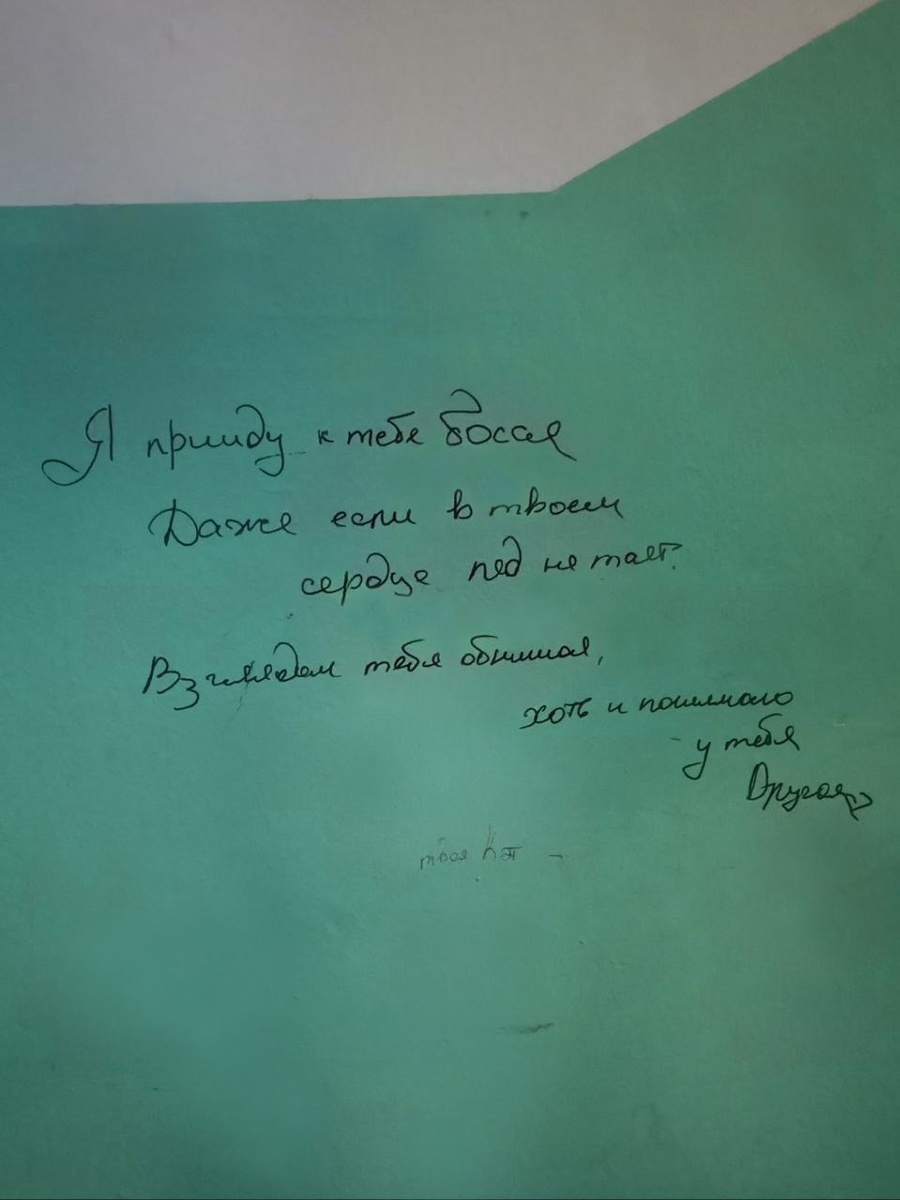 Я прииду к тебе босая
Даже если в твоем
сердце лед не тает.
Взглядом тебя обнимая,
хоть и понимаю
у тебя
Другая
твоя